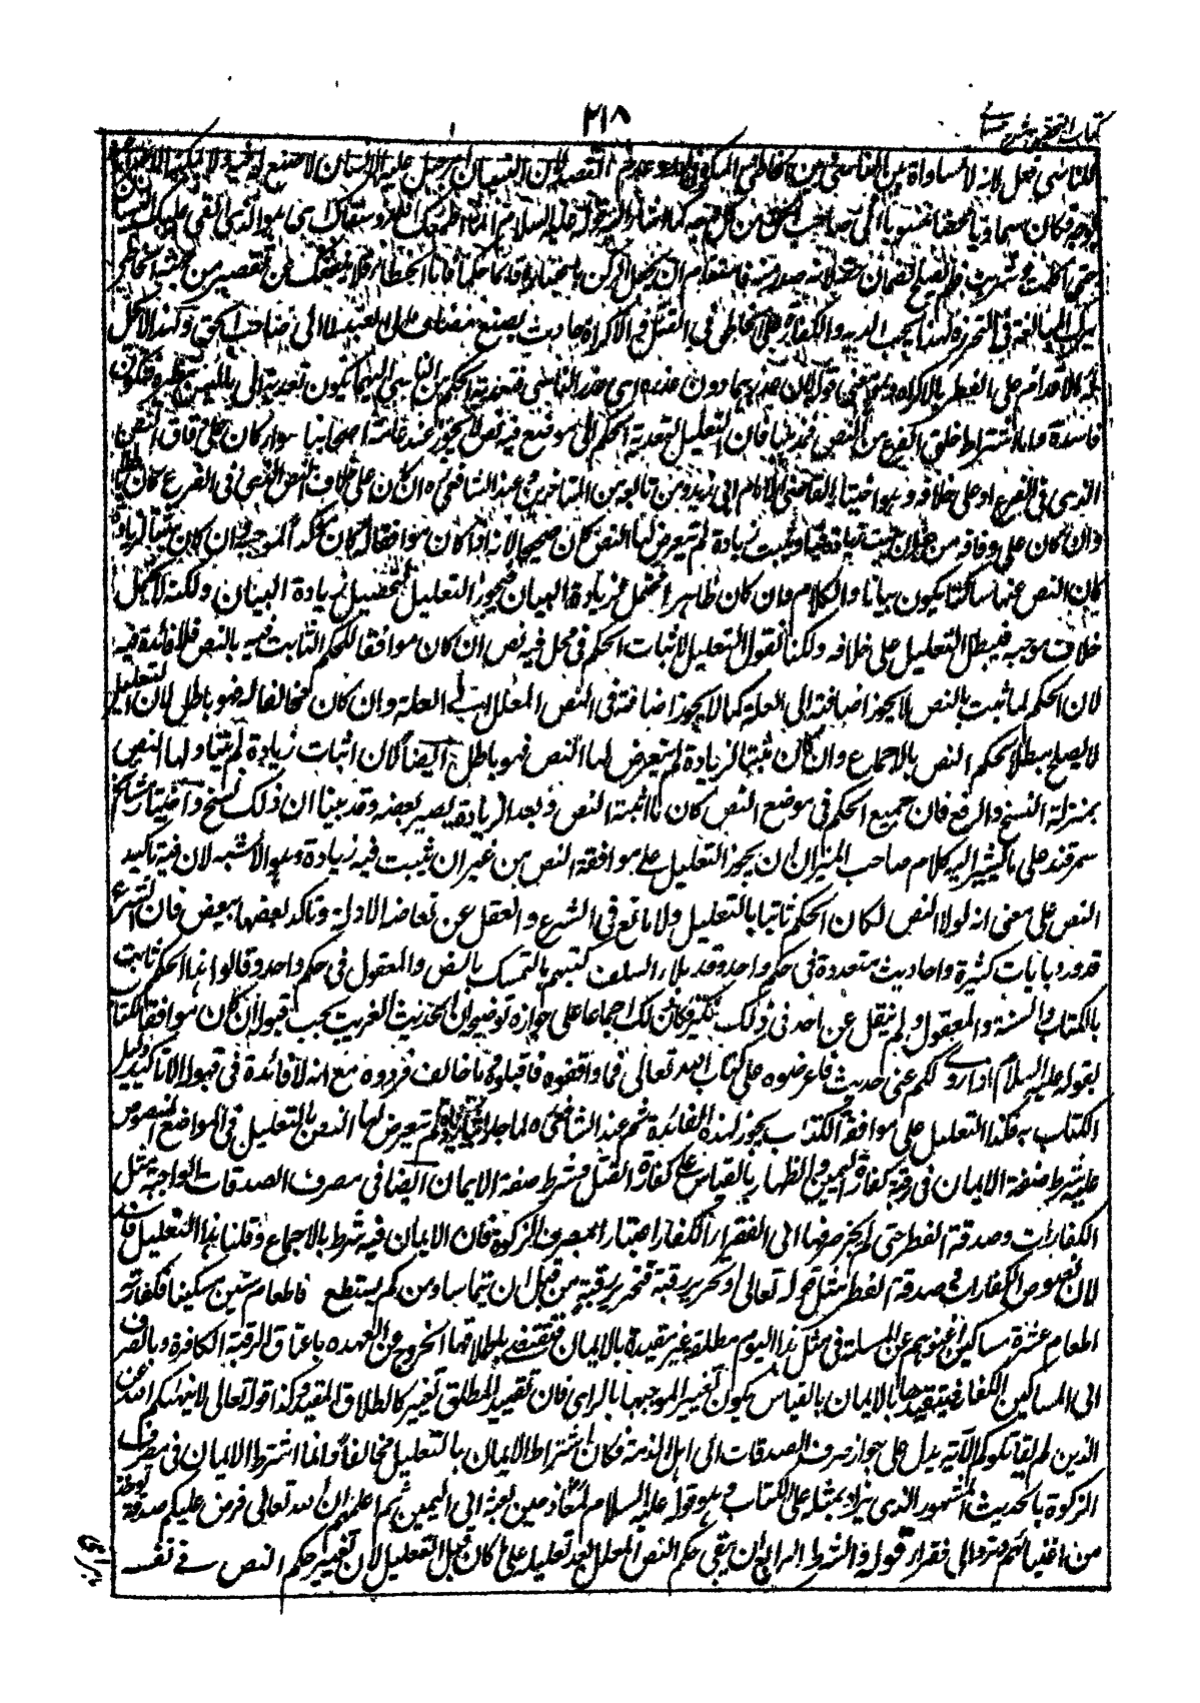 ٢١٨
كتاب التحقيق شرح حسامى
للناسى فعل لانه لا مساواة بين الناسى وبين الخاطئ والمكره فى عدم القصد لان النسيان امر جبل عليه الانسان لا صنع له فيه ولا
بوجه فكان سماويا محضا منسوبا الى صاحب الحق من كل وجه كما اشار اليه قوله عليه السلام انما اطعمك الله وسقاك اى هو الذى القى عليك النسيان
حتى اكلت وشربت فلم يصلح لضمان حقه لانه صدر منه
ترك المبالغة فى التحرز ولهذا يجب الدية والكفارة على الخاطئ فى القتل والاكراه حادث بصنع مضاف الى العبد لا الى صاحب الحق
له الاقدام على الفطر بالاكراه وهو معنى قوله لان عذرهما دون عذره اى عذر الناسى فتعدية الحكم من الناسى اليهما يكون تعدية الى ما ليس بنظيره فتكون
فاسدة واما اشتراط خلو الفرع من النص فمذهبنا فان التعليل لتعدية الحكم الى موضع فيه نص لا يجوز عند عامة اصحابنا سواء كان على وفاق النص
الذى فى الفرع او على خلافه وهو اختيار القاضى الامام ابى زيد ومن تابعه من المتأخرين وعند الشافعى ره ان كان على خلاف النص الذى فى الفرع كان باطلا
وان كان على وفاقه من غير ان يثبت زيادة فيه او يثبت زيادة لم يتعرض لها النص كان صحيحا لانه اذا كان موافقا له كان مؤكدا لموجبه وان كان مثبتا لزيادة
كان النص عنها ساكتا يكون بيانا والكلام وان كان ظاهرا يحتمل زيادة البيان فيجوز التعليل لتحصيل زيادة البيان ولكنه لا يحتمل
خلاف موجبه فيبطل التعليل على خلافه ولكنا نقول التعليل لاثبات الحكم فى محل فيه نص ان كان موافقا للحكم الثابت فيه بالنص فلا فائدة فيه
لان الحكم لما ثبت بالنص لا يجوز اضافته الى العلة كما لا يجوز اضافته فى النص المعلل الى العلة وان كان مخالفا له فهو باطل لان التعليل
لا يصلح مبطلا لحكم النص بالاجماع وان كان مثبتا لزيادة لم يتعرض لها النص فهو باطل ايضا لان اثبات زيادة لم يتناولها النص
بمنزلة النسخ والرفع فان جميع الحكم فى موضع النص كان ما اثبته النص وبعد الزيادة يصير بعضه وقد بينا ان ذلك نسخ واختيار مشائخ
سمرقند على ما يشير اليه كلام صاحب الميزان ان يجوز التعليل على موافقة النص من غير ان يثبت فيه زيادة وهو الاشبه لان فيه تاكيد
النص على معنى انه لولا النص لكان الحكم ثابتا بالتعليل ولا مانع فى الشرع والعقل عن تعاضد الادلة وتاكد بعضها ببعض فان الشرع
قد ورد بآيات كثيرة واحاديث متعددة فى حكم واحد وقد ملأ السلف كتبهم بالتمسك بالنص والمعقول فى حكم واحد وقالوا هذا الحكم ثابت
بالكتاب والسنة والمعقول ولم ينقل عن احد فى ذلك نكير فكان ذلك اجماعا على جوازه توضيحه ان الحديث الغريب يجب قبوله ان كان موافقا للكتاب
لقوله عليه السلام اذا روى لكم عنى حديث فاعرضوه على كتاب الله تعالى فما وافقوه فاقبلوه وما خالف فردوه مع انه لا فائدة فى قبوله الا تاكيد دليل
الكتاب به فكذا التعليل على موافقة الكتاب يجوز لهذه الفائدة ثم عند الشافعى ره لما جاز اثبات زيادة لم يتعرض لها النص بالتعليل فى المواضع المنصوص
عليه شرط صفة الايمان فى رقبة كفارة اليمين والظهار بالقياس على كفارة القتل وشرط صفة الايمان ايضا فى مصرف الصدقات الواجبة مثل
الكفارات وصدقة الفطر حتى لم يجز صرفها الى الفقراء الكفار اعتبارا بمصرف الزكوة فان الايمان فيه شرط بالاجماع وقلنا هذا التعليل فاسد
لان نصوص الكفارات وصدقة الفطر مثل قوله تعالى او تحرير رقبة فتحرير رقبة من قبل ان يتماسا ومن لم يستطع فاطعام ستين مسكينا فكفارته
اطعام عشرة مساكين اغنوهم عن المسئلة فى مثل هذا اليوم مطلقة غير مقيدة بالايمان فيقتضى باطلاقها الخروج عن العهده باعتاق الرقبة الكافرة وبالصرف
الى المساكين الكفار فتقييدها بالايمان بالقياس يكون تغييرا لموجبها بالراى فان تقييد المطلق تغيير كاطلاق المقيد وكذا قوله تعالى لا ينهٰكم الله عن
الذين لم يقاتلوكم الآية يدل على جواز صرف الصدقات الى اهل الذمة فكان اشتراط الايمان بالتعليل مخالفا له وانما اشترط الايمان فى مصرف
الزكوة بالحديث المشهور الذى يزاد بمثله على الكتاب وهو قوله عليه السلام لمعاذ حين بعثه الى اليمن ثم اعلمهم ان الله تعالى فرض عليكم صدقة توخذ
من اغنيائهم وترد الى فقرائهم قوله والشرط الرابع ان يبقى حكم النص المعلل بعد تعليله على ما كان قبل التعليل لان تغيير حكم النص فى نفسه